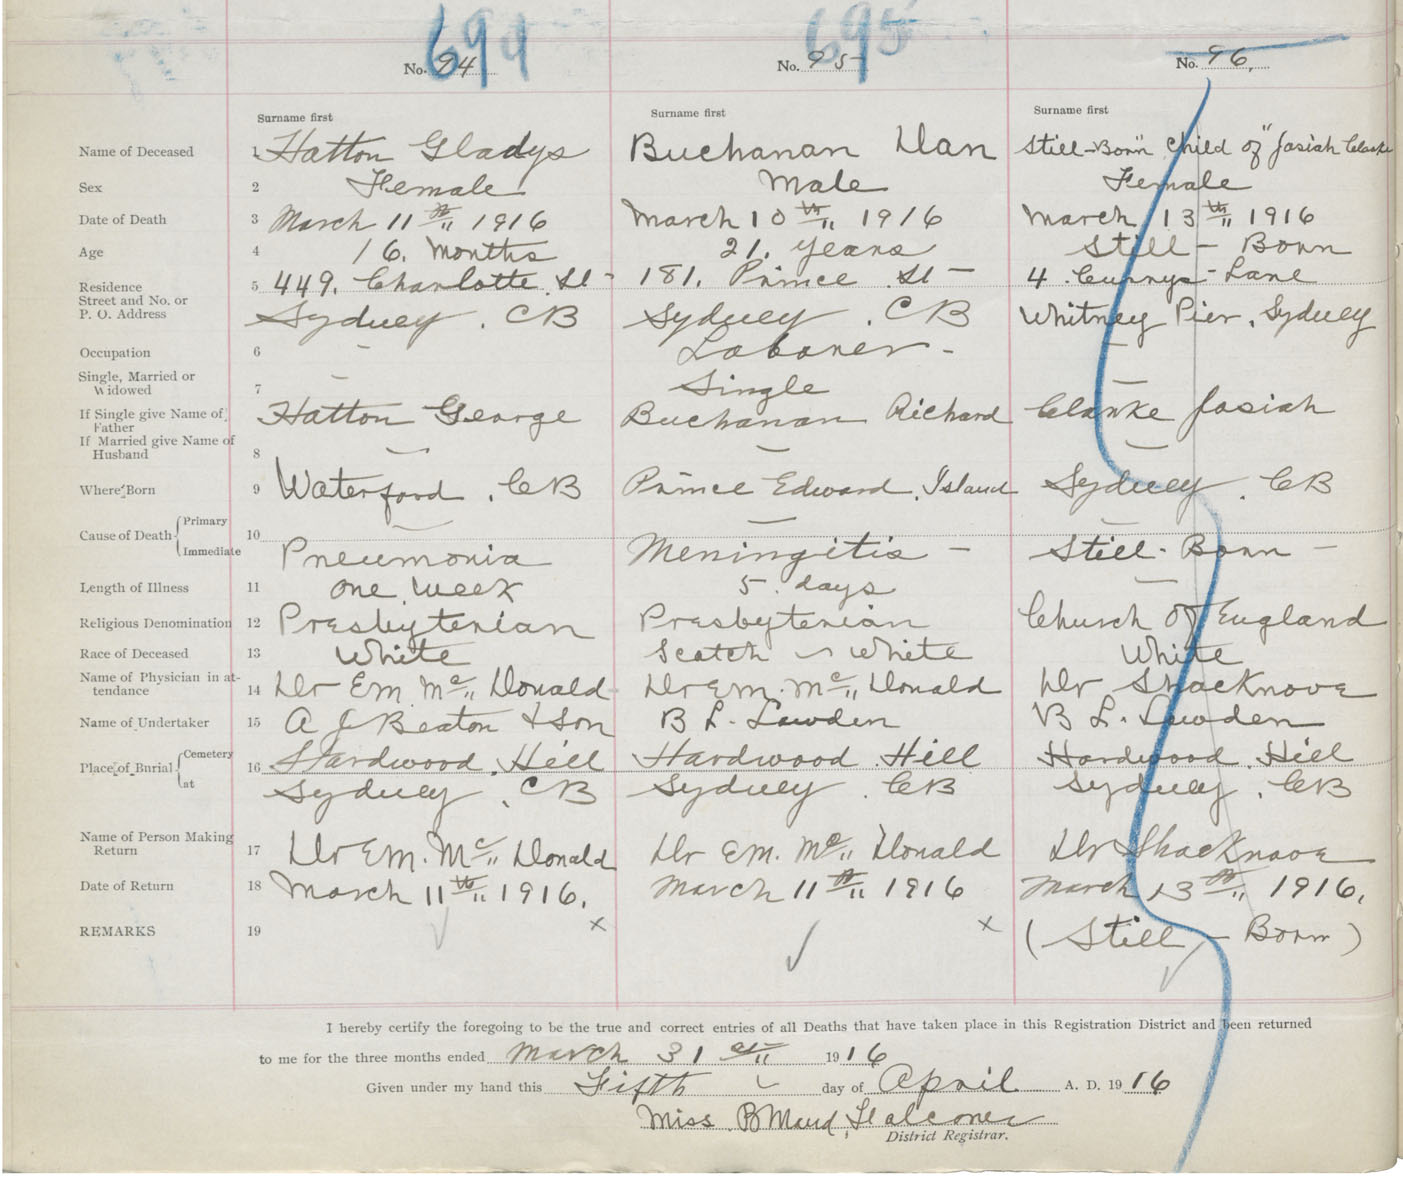 694 695
No. 94 No. 95 No. 96.
Surname first Surname first Surname first
Name of Deceased 1 Hatton Gladys Buchanan Dan Still-Born "Child of" Josiah Clarke
Sex 2 Female Male Female
Date of Death 3 March 11th 1916 March 10th 1916 March 13th 1916
Age 4 16. Months 21. years Still - Born
Residence 5 449. Charlotte St - 181. Prince St - 4 Currys - Lane
Street and No. or
P. O. Address Sydney . CB Sydney . CB Whitney Pier. Sydney
Occupation 6 - Laborer - -
Single, Married or
Widowed 7 - Single -
If Single give Name of Father Hatton George Buchanan Richard Clarke Josiah
If Married give Name of Husband 8 - - -
Where Born 9 Waterford . CB Prince Edward Island Sydney . CB
Cause of Death { Primary 10 - - -
Immediate Pneumonia Meningitis - Still - Born -
Length of Illness 11 one week 5 days -
Religious Denomination 12 Presbyterian Presbyterian Church Of England
Race of Deceased 13 White Scotch - White White
Name of Physician in attendance 14 Dr EM. Mc Donald Dr EM. Mc Donald Dr Shacknove
Name of Undertaker 15 A J Beaton & Son B L. Lowden B L. Lowden
Place of Burial { Cemetery 16 Hardwood Hill Hardwood Hill Hardwood Hill
at Sydney . CB Sydney . CB Sydney . CB
Name of Person Making Return 17 Dr EM. Mc Donald Dr EM. Mc Donald Dr Shacknove
Date of Return 18 March 11th 1916. March 11th 1916 March 13th 1916.
REMARKS 19 x x (Still - Born)
I hereby certify the foregoing to be the true and correct entries of all Deaths that have taken place in this Registration District and been returned
to me for the three months ended March 31st 1916
Given under my hand this Fifth day of April A. D. 1916
Miss B Maud Falconer
District Registrar.